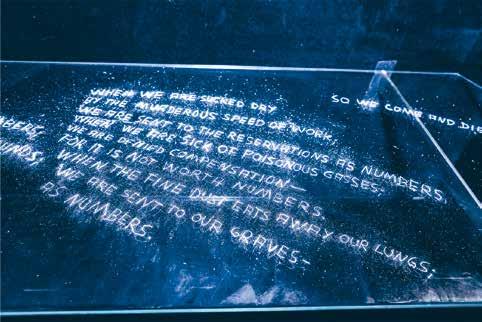 WHEN WE ARE SUCKED DRY
BY THE MURDEROUS SPEED OF WORK,
WE ARE SENT TO THE RESERVATIONS AS NUMBERS.
WE ARE SICK OF POISONOUS GASSES;
WE ARE DENIED COMPENSATION—
FOR IT IS NOT WORTH NUMBERS.
WHEN THE FINE DUST EATS AWAY OUR LUNGS,
WE ARE SENT TO OUR GRAVES—
AS NUMBERS.
SO WE COME AND DIE